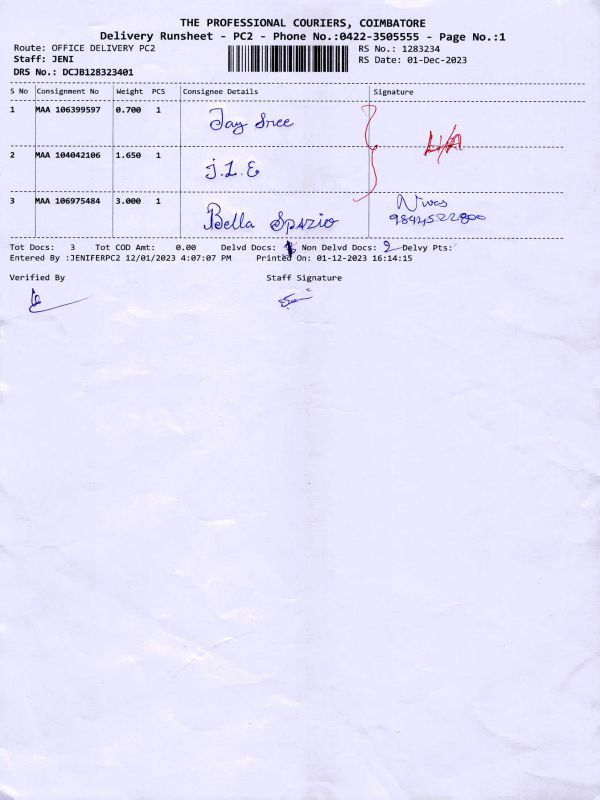 THE PROFESSIONAL COURIERS, COIMBATORE
Delivery Runsheet - PC2 - Phone No.:0422-3505555 - Page No.:1
Route: OFFICE DELIVERY PC2 RS No.: 1283234
Staff: JENI RS Date: 01-Dec-2023
DRS No.: DCJB128323401
S No Consignment No Weight PCS Consignee Details Signature
1 MAA 106399597 0.700 1 Jay Sree
2 MAA 104042106 1.650 1 J.L.E
3 MAA 106975484 3.000 1 Bella Spazio Nivas
9894522800
Tot Docs: 3 Tot COD Amt: 0.00 Delvd Docs: 1 Non Delvd Docs: 2 Delvy Pts:
Entered By :JENIFERPC2 12/01/2023 4:07:07 PM Printed On: 01-12-2023 16:14:15
Verified By Staff Signature